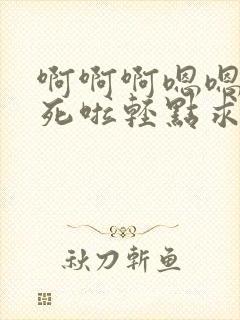 啊啊啊嗯嗯
死啦轻點求
秋刀斩鱼